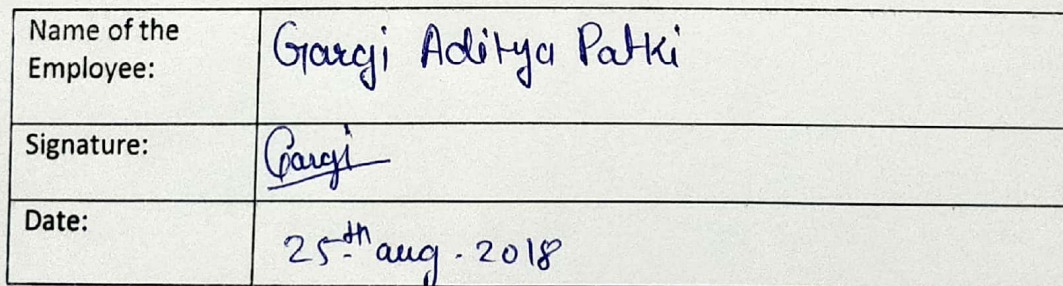 Name of the
Employee:
Gargi Aditya Patki
Signature:
Gargi
Date:
25th aug. 2018